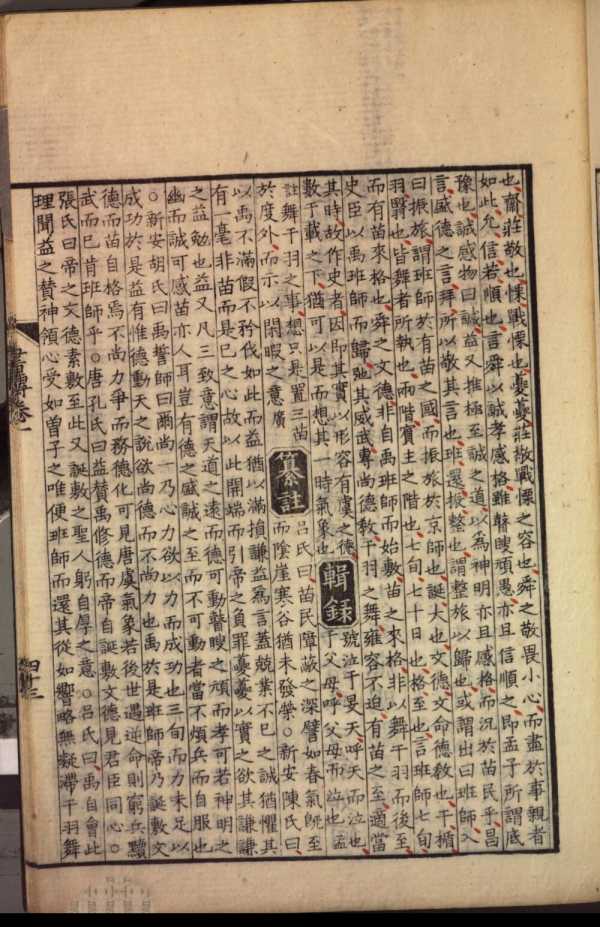 也齋莊敬也慄戰慄也夔夔莊敬戰慄之容也舜之敬畏小心而盡於事親者
如此允信若順也言舜以誠孝感格雖瞽瞍頑愚亦且信順之即孟子所謂底
豫也誠感物曰諴益又推極至誠之道以爲神明亦且感格而況於苗民乎昌
言盛德之言拜所以敬其言也班還振整也謂整旅以歸也或謂出曰班師入
曰振旅謂班師於有苗之國而振旅於京師也誕大也文德文命德敎也干楯
羽翳也皆舞者所執也兩階賓主之階也七旬七十日也格至也言班師七旬
而有苗來格也舜之文德非自禹班師而始敷苗之來格非以舞干羽而後至
史臣以禹班師而歸弛其威武專尚德敎干羽之舞雍容不迫有苗之至適當
其時故作史者因即其實以形容有虞之德
數千載之下猶可以是而想其一時氣象也
輯錄
號泣于旻天呼天而泣也
于父母呼父母而泣也孟
註舞干羽之事想只是置三苗
於度外而示以閒暇之意廣
纂註
呂氏曰苗民障蔽之深譬如春氣旣至
而陰崖寒谷猶未發榮○新安陳氏曰
以禹不滿假不矜伐如此而益猶以滿損謙益爲言蓋兢業不已之誠猶懼其
有一毫非苗而是己之心故以此開端而引帝之負罪夔夔以實之欲其謙謙
之益勉也益又凡三致意謂天道之遠而德可動瞽瞍之頑而孝可若神明之
幽而誠可感苗亦人耳豈有德之盛誠之至而不可動者當不煩兵而自服也
○新安胡氏曰禹誓師曰爾尚一乃心力欲以力而成功也三旬而力未足以
成功於是益有惟德動天之說欲尚德而不尚力也禹於是班師帝乃誕敷文
德而苗自格焉不尚力爭而務德化可見唐虞氣象若後世遇逆命則窮兵黷
武而已肯班師乎○唐孔氏曰益贊禹修德而帝自誕敷文德見君臣同心○
張氏曰帝之文德素敷至此又誕敷之聖人躬自厚之意○呂氏曰禹自會此
理聞益之贊神領心受如曾子之唯便班師而還其從如響略無疑滯干羽舞
書傳卷一
四十三